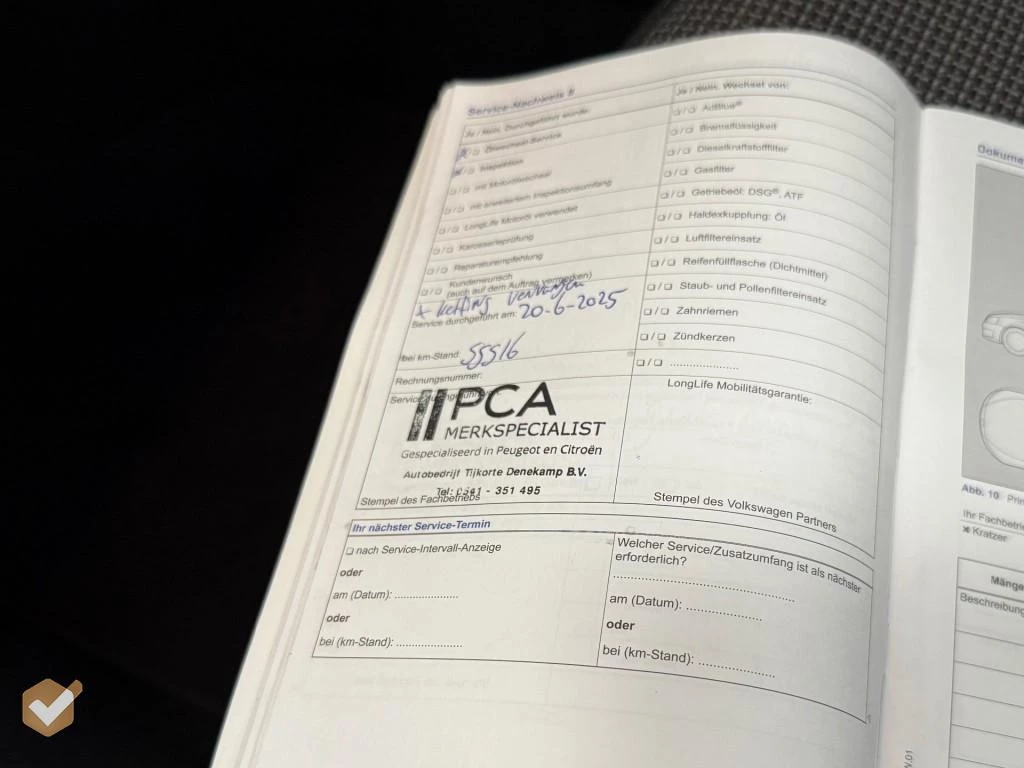 Service-Nachweis 8
Ja / Nein, Durchgeführt wurde:
❏ Ölwechsel-Service
❏ Inspektion
❏/❏ mit Motorölwechsel
❏/❏ mit erweitertem Inspektionsumfang
❏/❏ LongLife Motoröl verwendet
❏/❏ Karosserieprüfung
❏/❏ Reparaturempfehlung
❏/❏ Kundenwunsch
(auch auf dem Auftrag vermerken)
+ ketting vervangen
Service durchgeführt am: 20-6-2025
bei km-Stand: 55516
Rechnungsnummer:
Service durchgeführt
PCA
MERKSPECIALIST
Gespecialiseerd in Peugeot en Citroën
Autobedrijf Tijkorte Denekamp B.V.
Tel: 0541 - 351 495
Stempel des Fachbetriebs
Ja / Nein, Wechsel von:
❏/❏ AdBlue®
❏/❏ Bremsflüssigkeit
❏/❏ Dieselkraftstofffilter
❏/❏ Gasfilter
❏/❏ Getriebeöl: DSG®, ATF
❏/❏ Haldexkupplung: Öl
❏/❏ Luftfiltereinsatz
❏/❏ Reifenfüllflasche (Dichtmittel)
❏/❏ Staub- und Pollenfiltereinsatz
❏/❏ Zahnriemen
❏/❏ Zündkerzen
❏/❏ .....................
LongLife Mobilitätsgarantie:
Stempel des Volkswagen Partners
Ihr nächster Service-Termin
❏ nach Service-Intervall-Anzeige
oder
am (Datum): ....................
oder
bei (km-Stand): ....................
Welcher Service/Zusatzumfang ist als nächster
erforderlich?
..................................................
am (Datum): .....................
oder
bei (km-Stand): .....................
Dokume
Abb. 10 Prin
Ihr Fachbetrie
✶ Kratzer
Mänge
Beschreibung